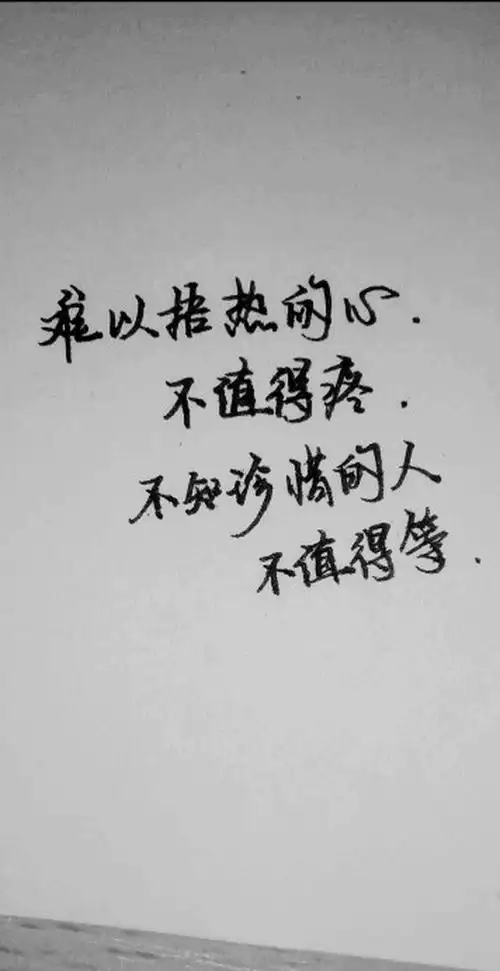 难以捂热的心.
不值得疼.
不知珍惜的人
不值得等.